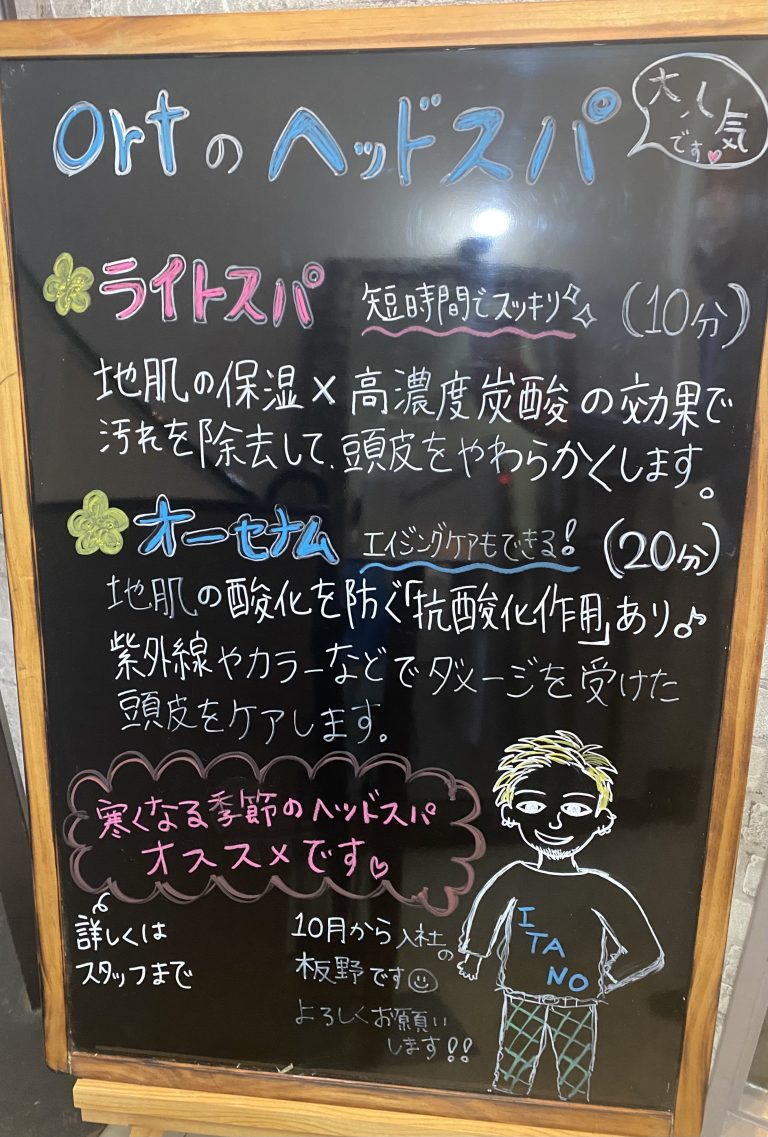 ortのヘッドスパ
大人気
です♥
ライトスパ 短時間でスッキリ (10分)
地肌の保湿×高濃度炭酸の効果で
汚れを除去して、頭皮をやわらかくします。
オーセナム エイジングケアもできる! (20分)
地肌の酸化を防ぐ「抗酸化作用」あり♪
紫外線やカラーなどでダメージを受けた
頭皮をケアします。
寒くなる季節のヘッドスパ
オススメです♡
詳しくは
スタッフまで
10月から入社の
板野です☺
よろしくお願い
します!!
I
TA
NO